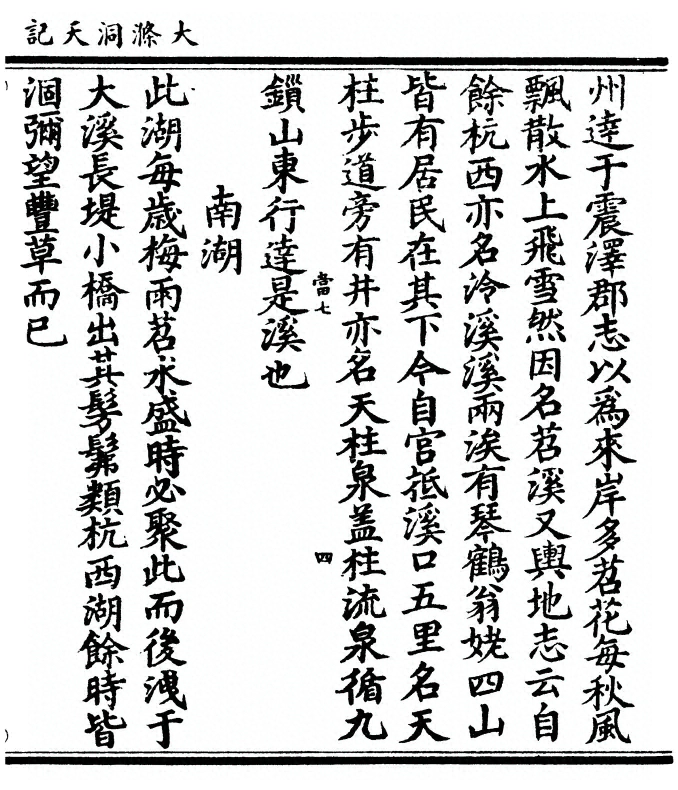 大滌洞天記
州達于震澤郡志以爲來岸多苕花每秋風
飄散水上飛雪然因名苕溪又輿地志云自
餘杭西亦名泠溪溪兩涘有琴鶴翁姥四山
皆有居民在其下今自宮抵溪口五里名天
柱步道旁有井亦名天柱泉蓋柱流泉循九
當七
四
鎖山東行達是溪也
南湖
此湖每歲梅雨苕水盛時必聚此而後洩于
大溪長堤小橋出其髣髴類杭西湖餘時皆
涸彌望豐草而已